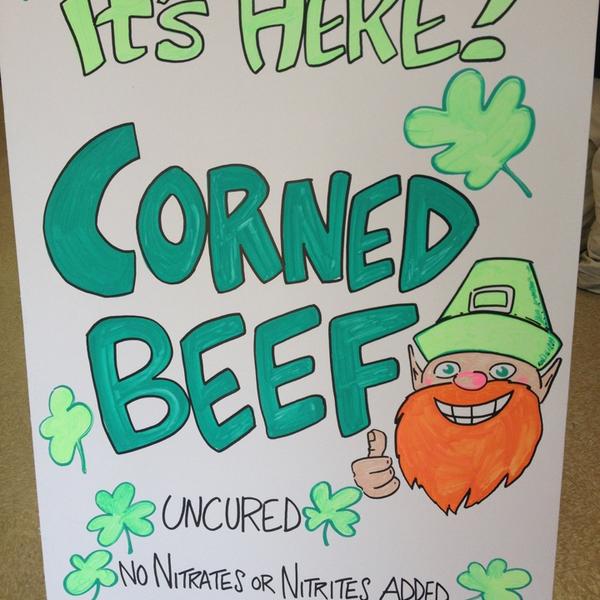 IT'S HERE!
CORNED
BEEF
UNCURED
NO NITRATES OR NITRITES ADDED